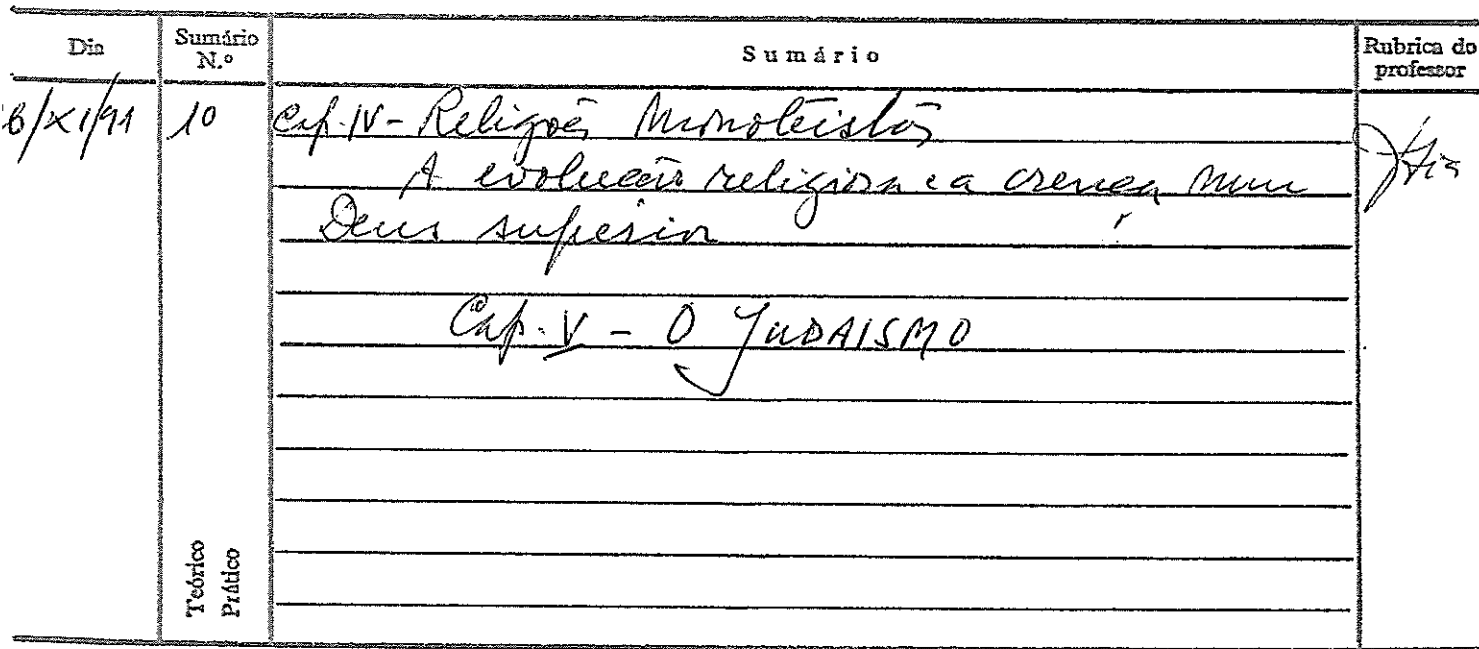 Dia
Sumário N.º
Sumário
Rubrica do professor
/XI/91
10
Cap. IV - Religiões Monoteístas
A evolução religiosa e a crença num
Deus superior
Cap. V - O JUDAISMO
Teórico
Prático